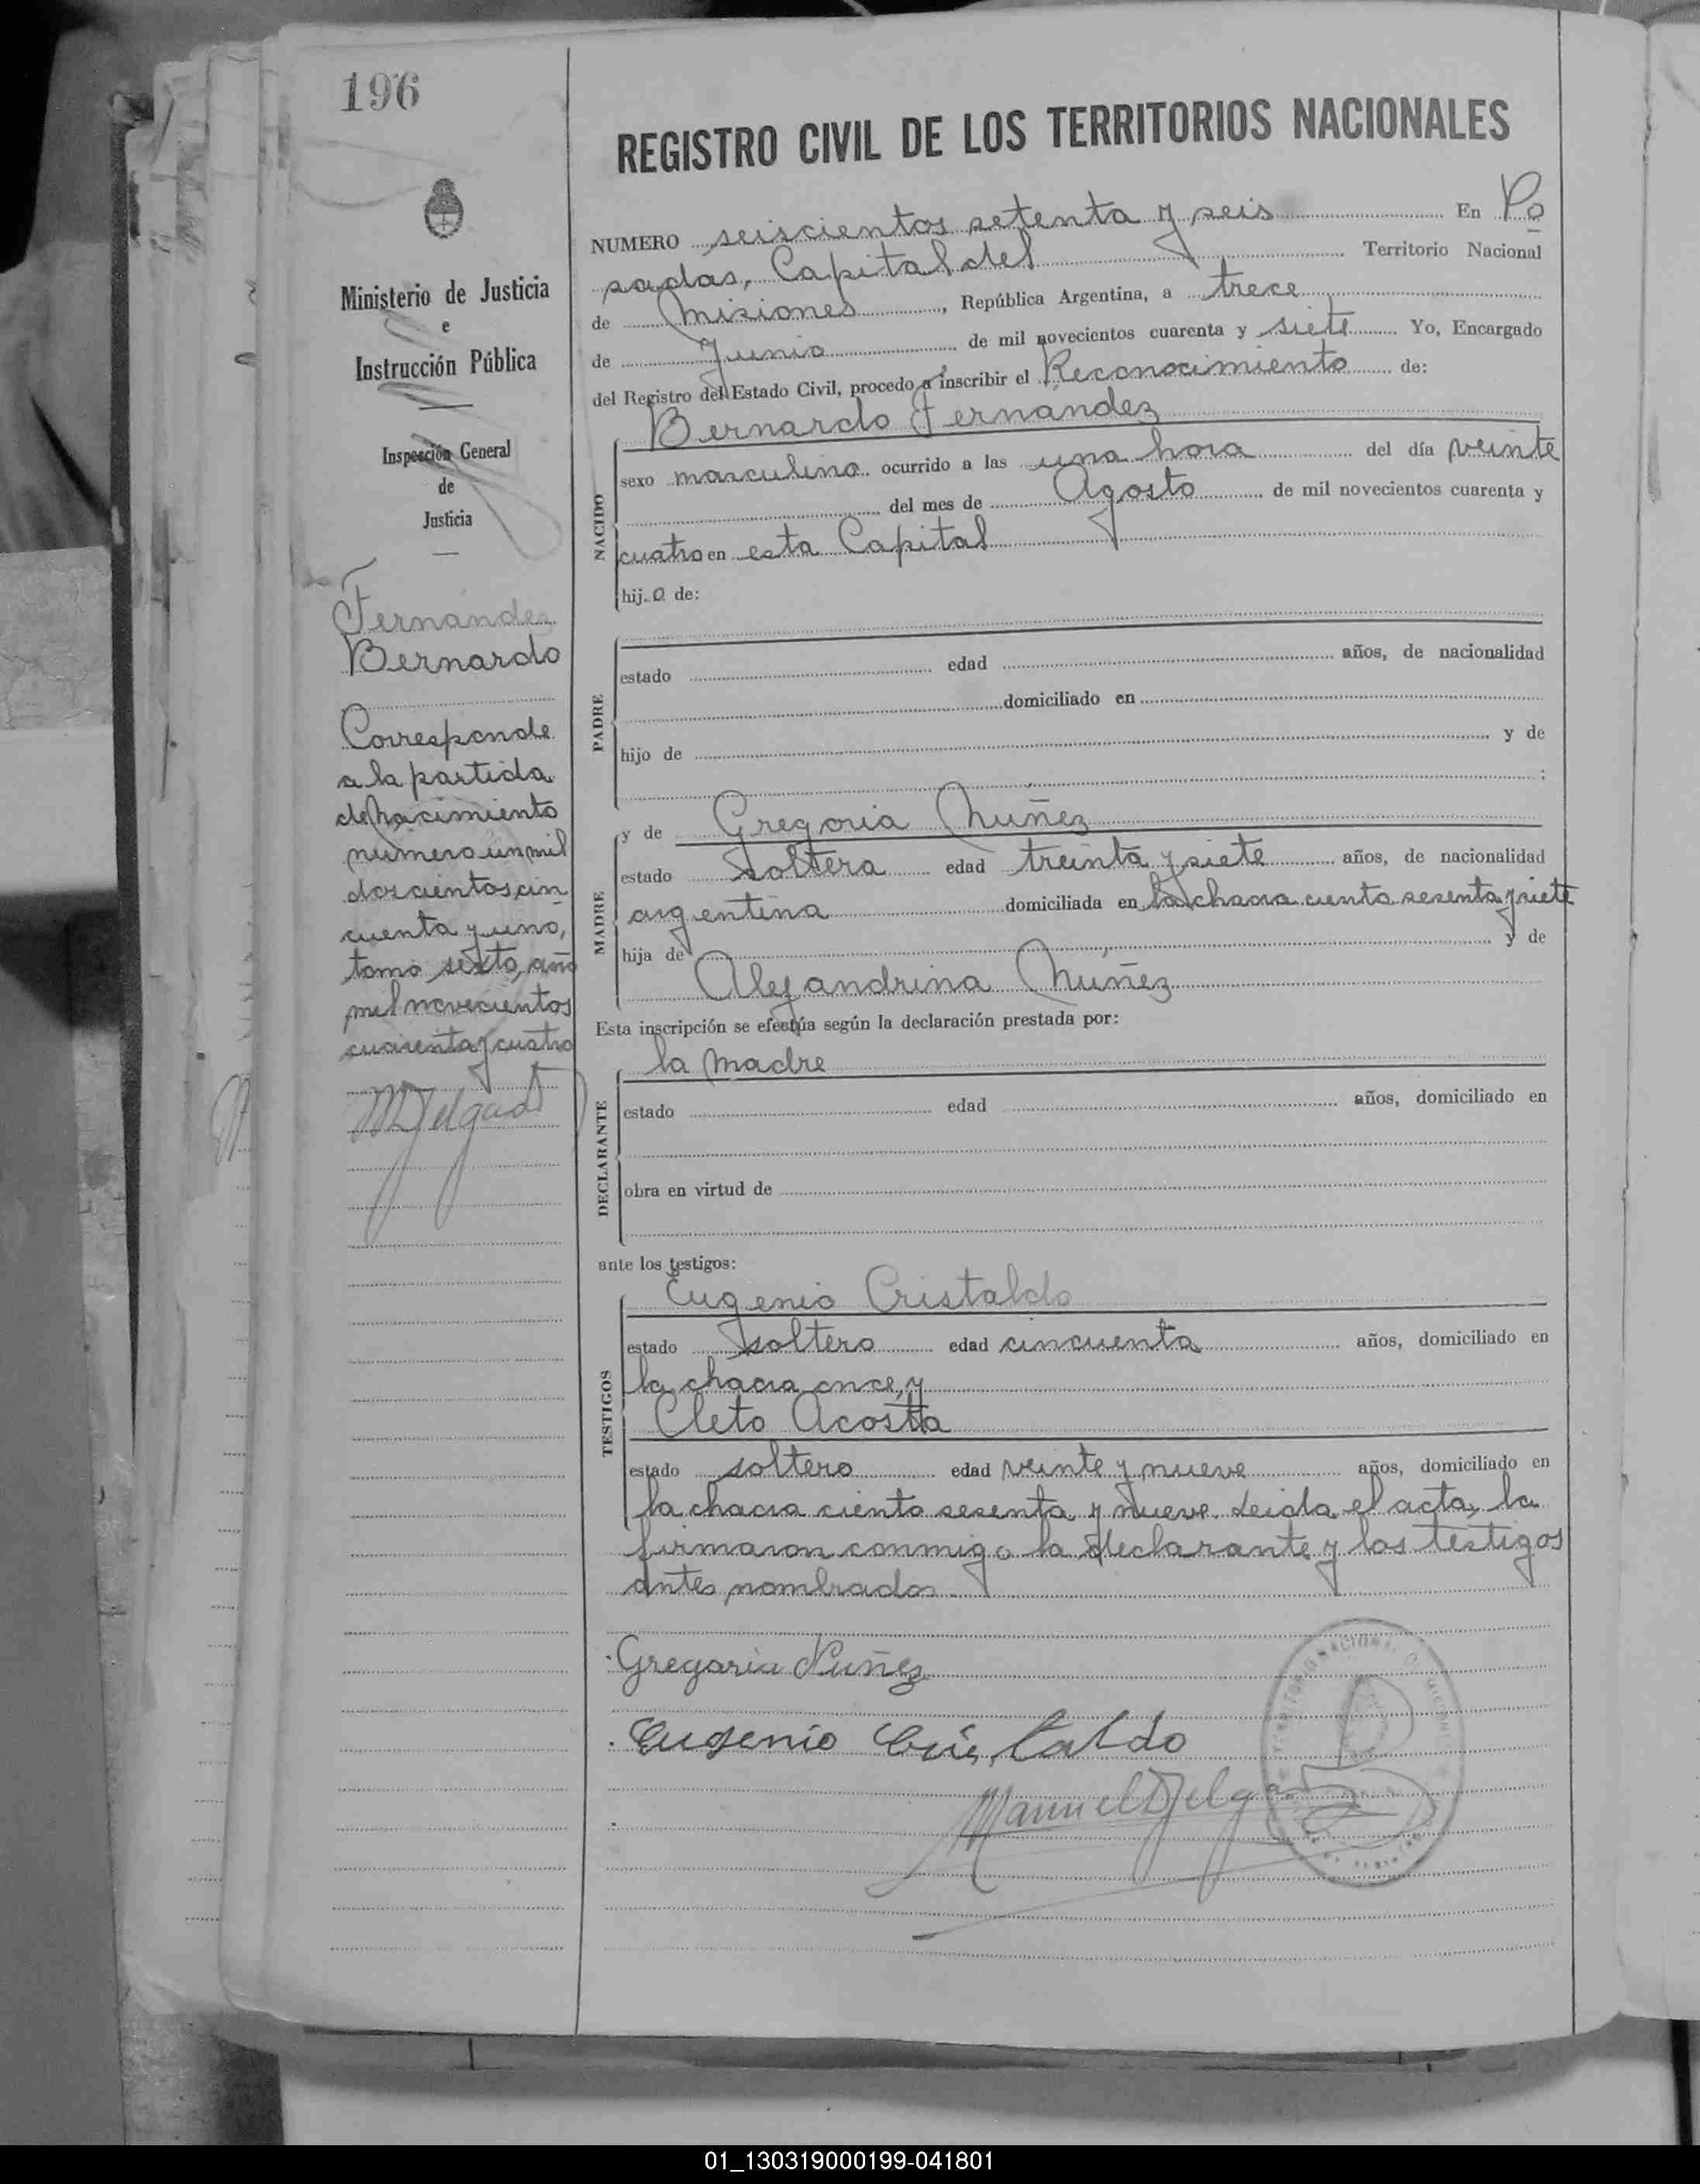 196
Ministerio de Justicia
e
Instrucción Pública
Inspección General
de
Justicia
Fernández
Bernardo
Corresponde
a la partida
de nacimiento
número un mil
doscientos cin
cuenta y uno,
tomo sexto, año
mil novecientos
cuarenta y cuatro
MDelgado
REGISTRO CIVIL DE LOS TERRITORIOS NACIONALES
NUMERO seiscientos setenta y seis En Po
sadas, Capital del Territorio Nacional
de Misiones, República Argentina, a trece
de Junio de mil novecientos cuarenta y siete Yo, Encargado
del Registro del Estado Civil, procedo a inscribir el Reconocimiento de:
Bernardo Fernández
NACIDO
sexo masculino ocurrido a las una hora del día veinte
del mes de Agosto de mil novecientos cuarenta y
cuatro en esta Capital
hijo de:
PADRE
estado edad años, de nacionalidad
domiciliado en
hijo de y de
;
y de Gregoria Nuñez
MADRE
estado soltera edad treinta y siete años, de nacionalidad
argentina domiciliada en la chacra ciento sesenta y siete
hija de y de
Alejandrina Nuñez
Esta inscripción se efectúa según la declaración prestada por:
la madre
DECLARANTE
estado edad años, domiciliado en
obra en virtud de
ante los testigos:
Eugenio Cristaldo
TESTIGOS
estado soltero edad cincuenta años, domiciliado en
la chacra once, y
Cleto Acosta
estado soltero edad veinte y nueve años, domiciliado en
la chacra ciento sesenta y nueve. Leida el acta, la
firmaron conmigo la declarante y los testigos
antes nombrados.
Gregoria Nuñez
Eugenio Cristaldo
Manuel Delgado
01_130319000199-041801